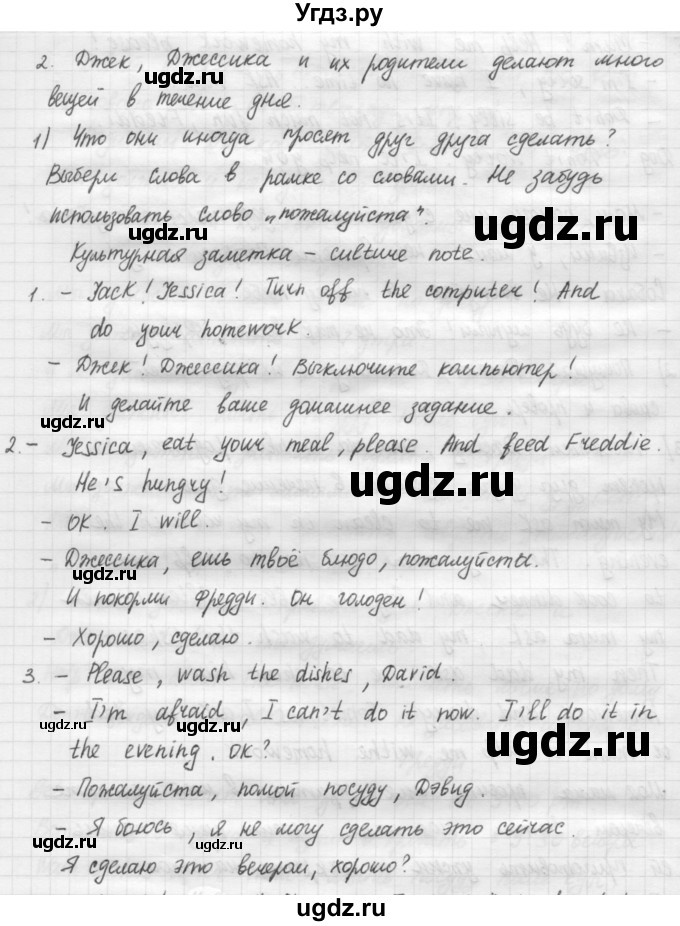 Угдз.ру
2. Джек, Джессика и их родители делают много
вещей в течение дня.
1) Что они иногда просят друг друга сделать?
Выбери слова в рамке со словами. Не забудь
использовать слово „пожалуйста".
ugdz.ru
ugdz.ru
Культурная заметка – culture note.
1. – Jack! Jessica! Turn off the computer! And
do your homework.
ugdz.ru
– Джек! Джессика! Выключите компьютер!
И делайте ваше домашнее задание.
ugdz.ru
2. – Jessica, eat your meal, please. And feed Freddie.
He's hungry!
ugdz.ru
– OK. I will.
– Джессика, ешь твоё блюдо, пожалуйсты.
ugdz.ru
И покорми Фредди. Он голоден!
– Хорошо, сделаю.
3. – Please, wash the dishes, David.
– I'm afraid, I can't do it now. I'll do it in
ugdz.ru
the evening. OK?
ugdz.ru
– Пожалуйста, помой посуду, Дэвид.
– Я боюсь, я не могу сделать это сейчас.
ugdz.ru
Я сделаю это вечером, хорошо?
ugdz.ru